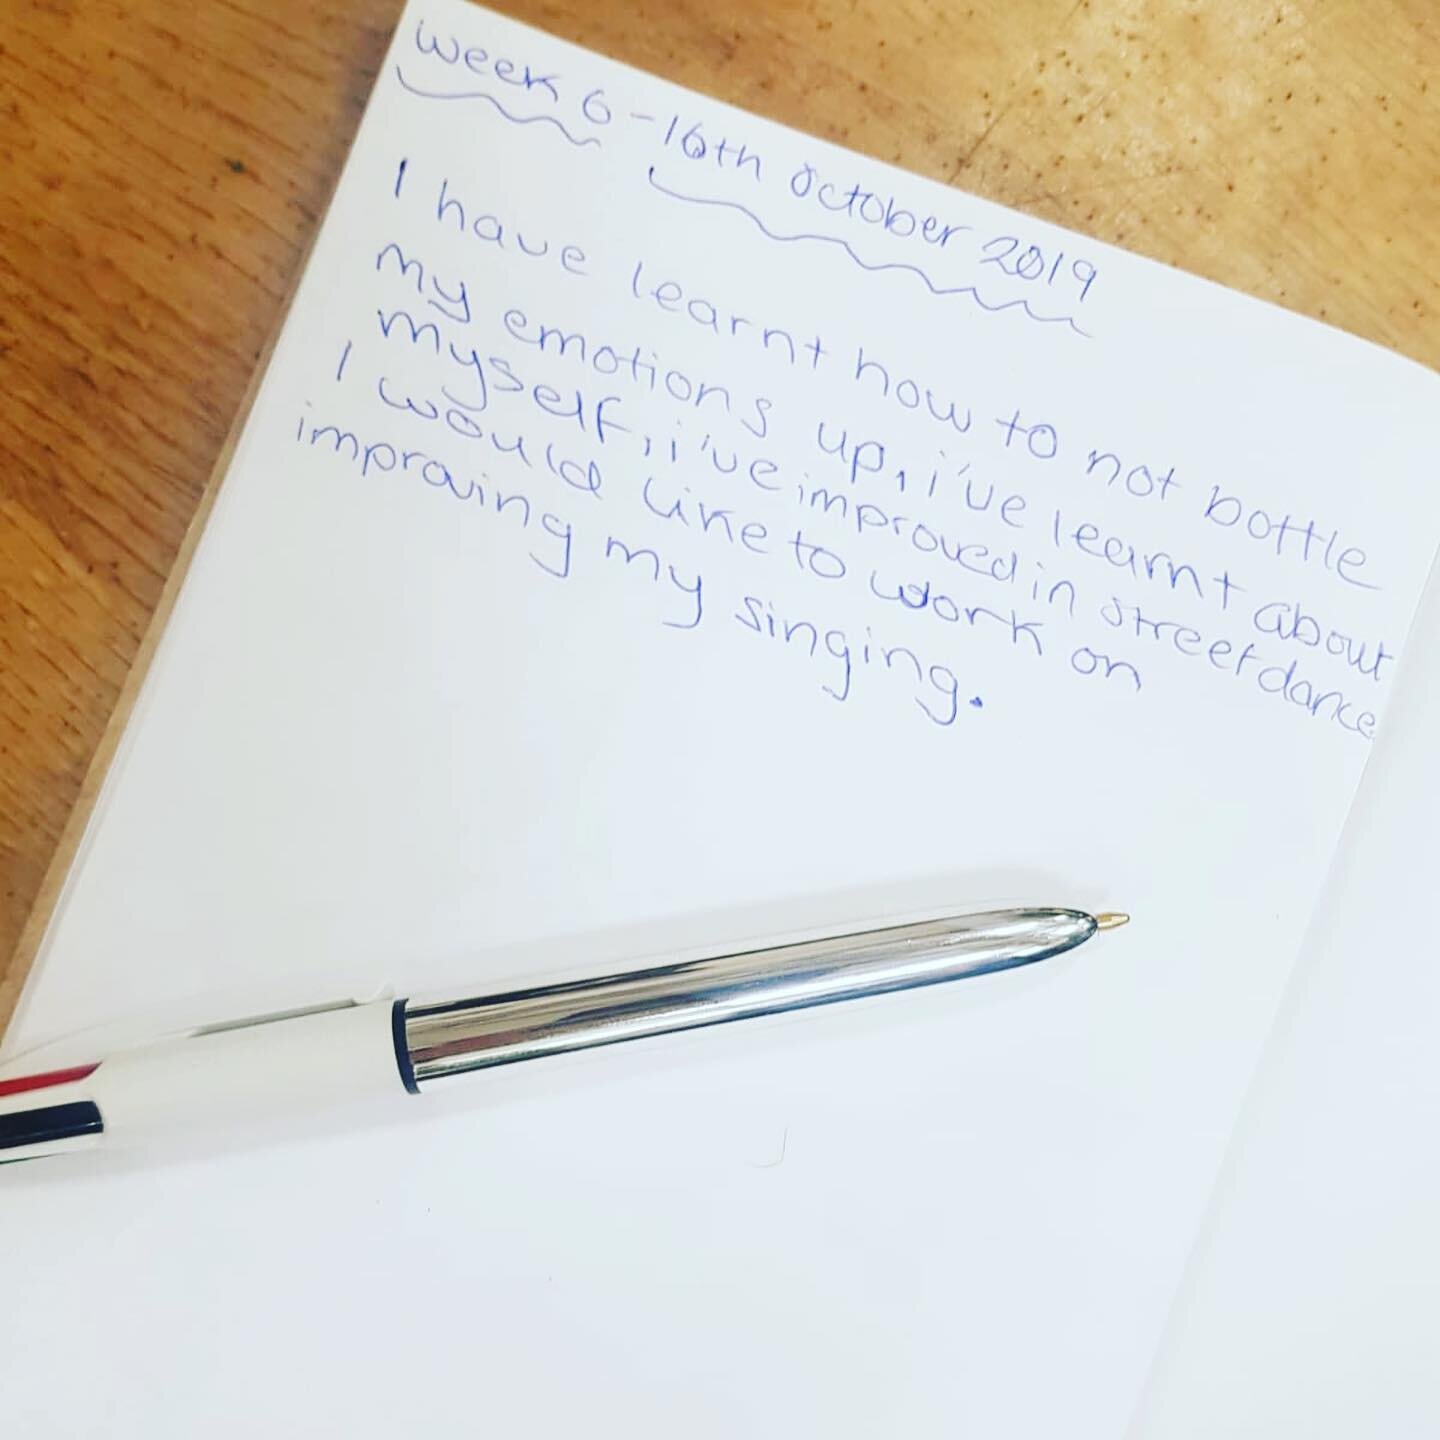 week 6 - 16th october 2019
I have learnt how to not bottle
my emotions up, i've learnt about
myself, i've improved in street dance
I would like to work on
improving my singing.